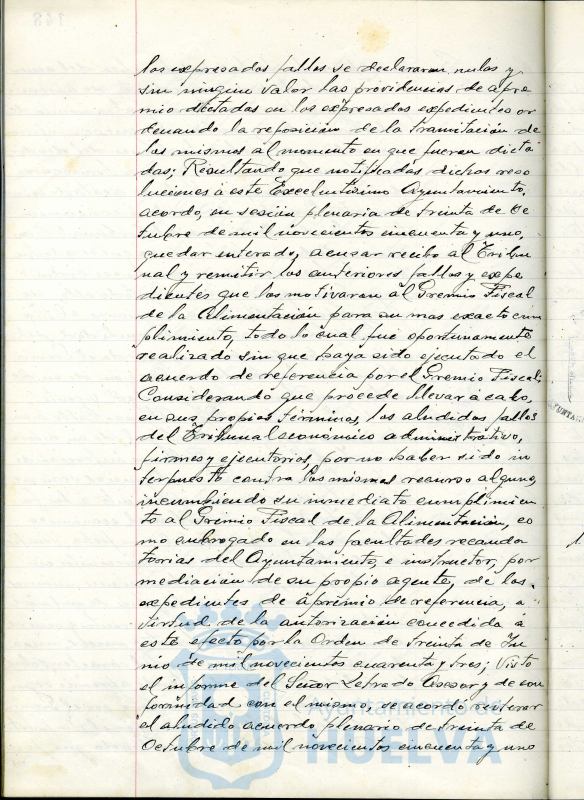 los expresados fallos se declararon nulas y
sin ningún valor las providencias de apre
mio dictadas en los expresados expedientes or
denando la reposición de la tramitación de
los mismos al momento en que fueron dicta
das; Resultando que notificadas dichas reso
luciones á este Excelentísimo Ayuntamiento,
acordó, en sesión plenaria de treinta de Oc
tubre de mil novecientos cincuenta y uno,
quedar enterado, acusar recibo al Tribu
nal y remitir los anteriores fallos y expe
dientes que los motivaron al Gremio Fiscal
de la Alimentación para su mas exacto cum
plimiento, todo lo cual fué oportunamente
realizado sin que haya sido ejecutado el
acuerdo de referencia por el Gremio Fiscal;
Considerando que procede llevar á cabo,
en sus propios términos, los aludidos fallos
del Tribunal económico administrativo,
firmes y ejecutorios, por no haber sido in
terpuesto contra los mismos recurso alguno,
incumbiendo su inmediato cumplimien
to al Gremio Fiscal de la Alimentación, co
mo subrogado en las facultades recauda
torias del Ayuntamiento, e instructor, por
mediación de su propio agente, de los
expedientes de apremio de referencia, a
virtud de la autorización concedida á
este efecto por la Orden de treinta de Ju
nio de mil novecientos cuarenta y tres; Visto
el informe del Señor Letrado Asesor y de con
formidad con el mismo, se acordó reiterar
el aludido acuerdo plenario de treinta de
Octubre de mil novecientos cincuenta y uno
Ayuntamiento de
HUELVA